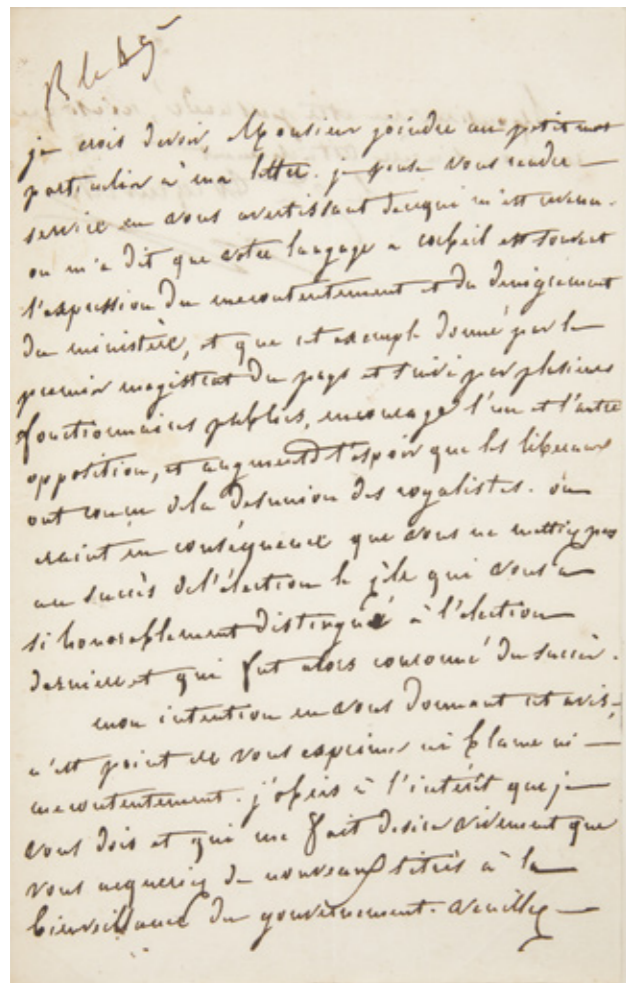 je crois devoir, Monsieur joindre un petit mot
particulier à ma lettre. je pense vous rendre
service en vous avertissant de ce qui m'est revenu.
on m'a dit que votre langage a corbeil est souvent
l'expression du mecontentement et du denigrement
du ministère, et que cet exemple donné par le
premier magistrat du pays et suivi par plusieurs
fonctionnaires publics, encourage l'une et l'autre
opposition, et augmente l'espoir que les liberaux
ont conçu de la desunion des royalistes. on
craint en conséquence que vous ne mettiez pas
au succès de l'élection le zèle qui vous a
si honorablement distingué à l'election
derniere et qui fut alors couronné du succès.
mon intention en vous donnant cet avis
n'est point de vous exprimer ni blame ni
mecontentement. j'obeis à l'intérêt que je
vous dois et qui me fait desirer vivement que
vous acqueriez de nouveaux titres à la
bienveillance du gouvernement. veuillez